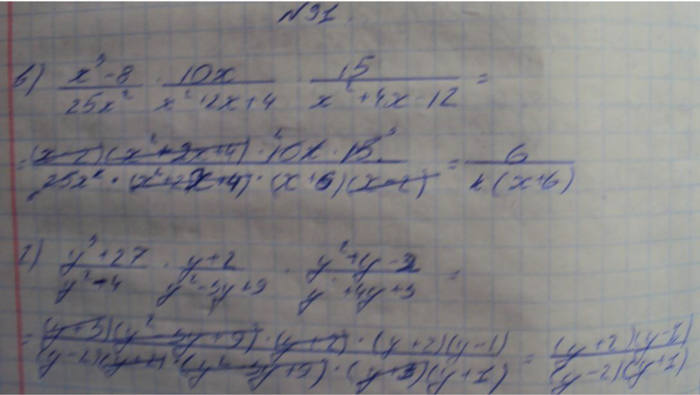 №31.
в) (x³-8)/(25x²) · 10x/(x²+2x+4) · 15/(x²+4x-12) =
= ((x-2)(x²+2x+4)·10x·15)/(25x²·(x²+2x+4)·(x+6)(x-2)) = 6/(x(x+6))
г) (y³+27)/(y²-4) · (y+2)/(y²-3y+9) · (y²+y-2)/(y²+4y+3) =
= ((y+3)(y²-3y+9)·(y+2)·(y+2)(y-1))/((y-2)(y+2)·(y²-3y+9)·(y+3)(y+1)) = ((y+2)(y-1))/((y-2)(y+1))